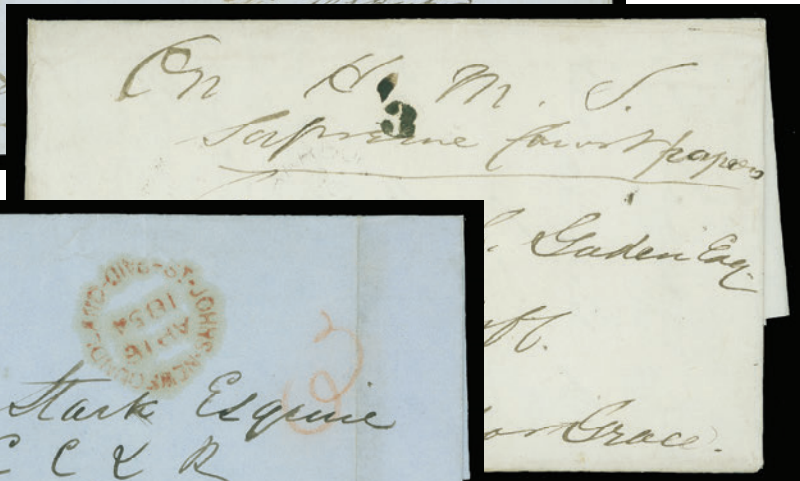 On H. M. S.
3
Supreme Court papers
Gaden Esq.
Grace.
PAID-ST. JOHNS-NEWFOUNDLAND
AP 18
1854
Stark Esquire
C C & R